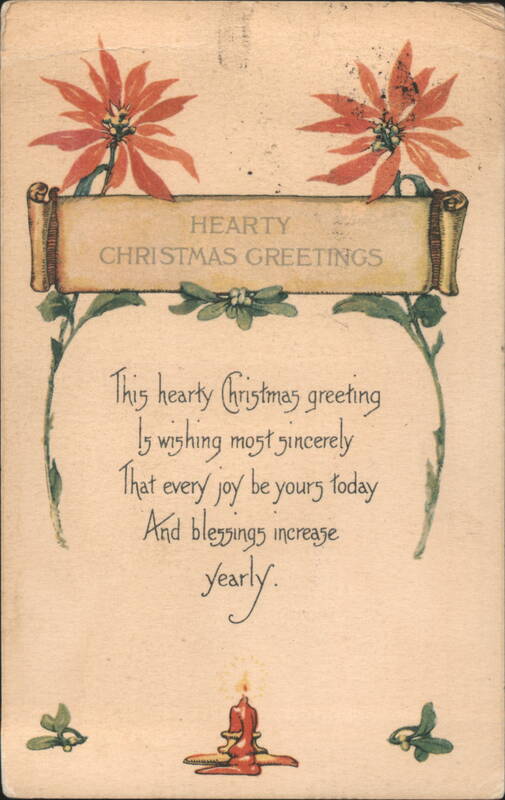 HEARTY
CHRISTMAS GREETINGS
This hearty Christmas greeting
Is wishing most sincerely
That every joy be yours today
And blessings increase
yearly.